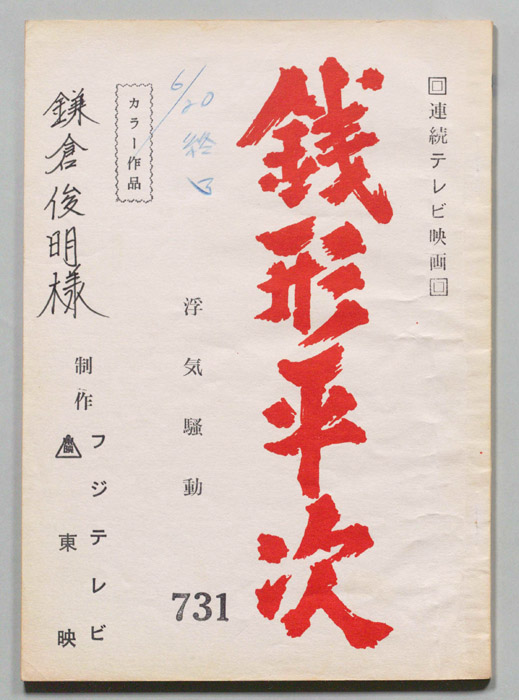 回連続テレビ映画回
銭形平次
浮気騒動
731
6/20 終日
カラー作品
鎌倉俊明様
制作
フジテレビ
東映